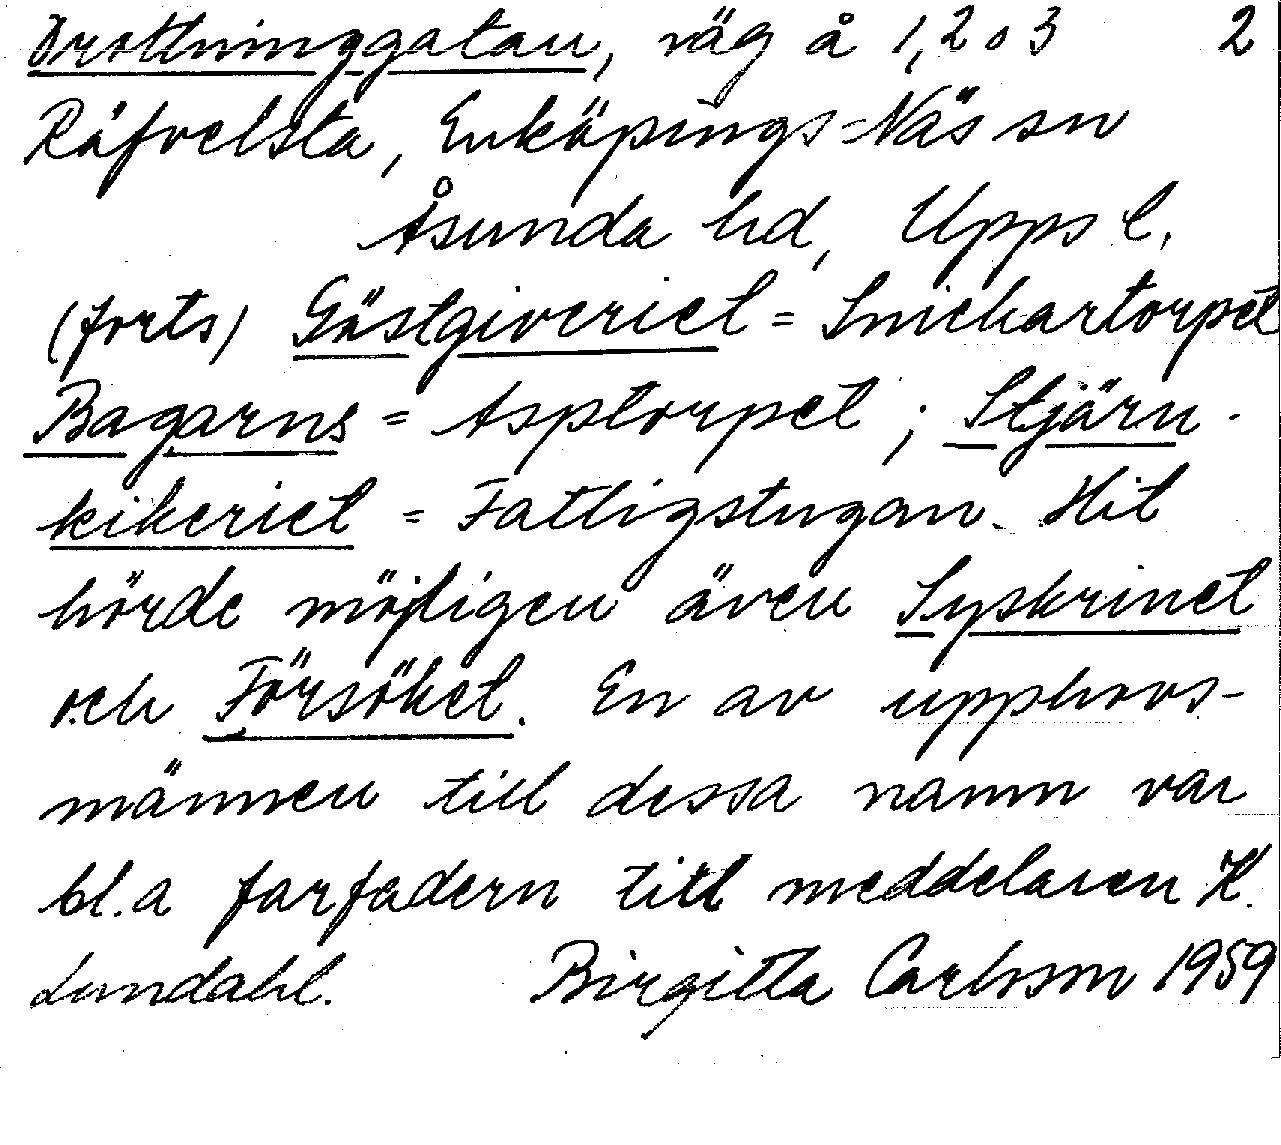 Drottninggatan, väg å 1, 2 o 3 2
Räfvelsta, Enköpings-Näs sn
Åsunda hd, Upps l.
(forts) Gästgiveriet = Snickartorpet
Bagarns = Asptorpet ; Stjärn-
kikeriet = Fattigstugan. Hit
hörde möjligen även Syskrinet
och Försöket. En av upphovs-
männen till dessa namn var
bl.a farfadern till meddelaren K.
Lundahl. Birgitta Carlsson 1959